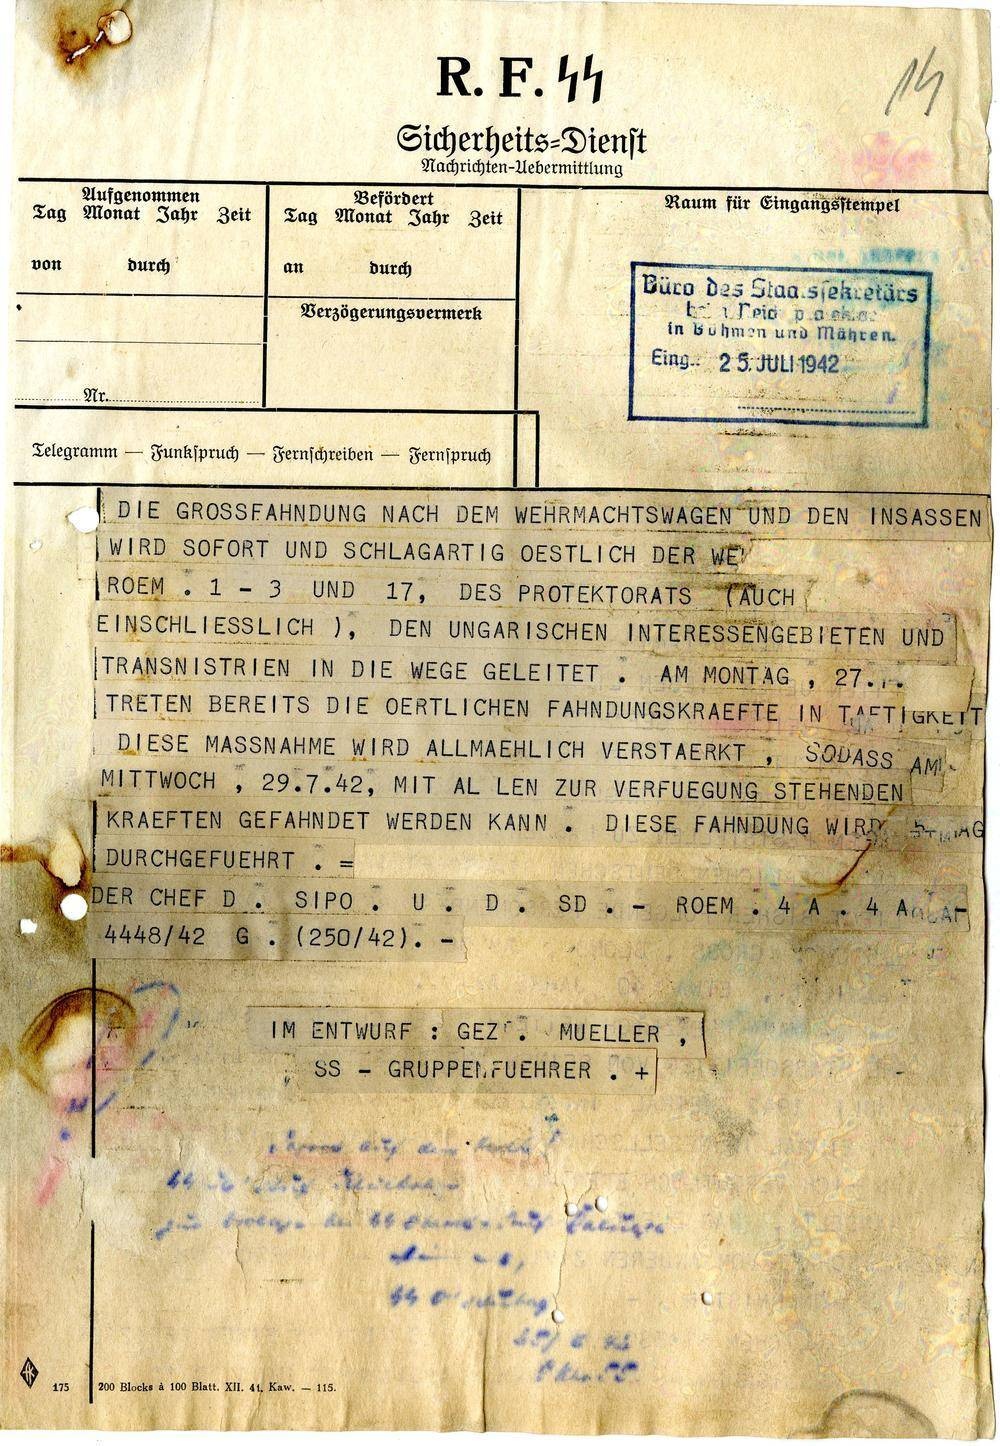 14
R. F. SS
Sicherheits-Dienst
Nachrichten-Uebermittlung
Aufgenommen
Tag Monat Jahr Zeit
von durch
Befördert
Tag Monat Jahr Zeit
an durch
Verzögerungsvermerk
Raum für Eingangsstempel
Büro des Staatssekretärs
in Böhmen und Mähren.
Eing.: 25. JULI 1942
Nr.
Telegramm — Funkspruch — Fernschreiben — Fernspruch
DIE GROSSFAHNDUNG NACH DEM WEHRMACHTSWAGEN UND DEN INSASSEN
WIRD SOFORT UND SCHLAGARTIG OESTLICH DER
ROEM . 1 - 3 UND 17, DES PROTEKTORATS (AUCH
EINSCHLIESSLICH ), DEN UNGARISCHEN INTERESSENGEBIETEN UND
TRANSNISTRIEN IN DIE WEGE GELEITET . AM MONTAG , 27.
TRETEN BEREITS DIE OERTLICHEN FAHNDUNGSKRAEFTE IN TAETIGKEIT
DIESE MASSNAHME WIRD ALLMAEHLICH VERSTAERKT , SODASS AM
MITTWOCH , 29.7.42, MIT AL LEN ZUR VERFUEGUNG STEHENDEN
KRAEFTEN GEFAHNDET WERDEN KANN . DIESE FAHNDUNG WIRD
DURCHGEFUEHRT . =
DER CHEF D . SIPO . U . D . SD . - ROEM . 4 A . 4 A
4448/42 G . (250/42). -
IM ENTWURF : GEZ . MUELLER ,
SS - GRUPPENFUEHRER . +
175 200 Blocks à 100 Blatt. XII. 41. Kaw. — 115.